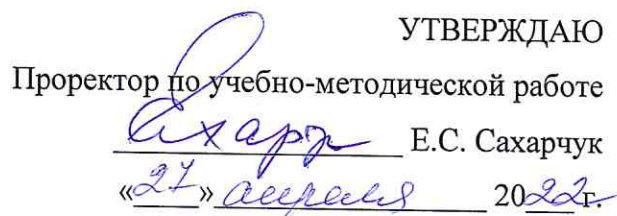 УТВЕРЖДАЮ
Проректор по учебно-методической работе
Е.С. Сахарчук
«27» апреля 2022г.